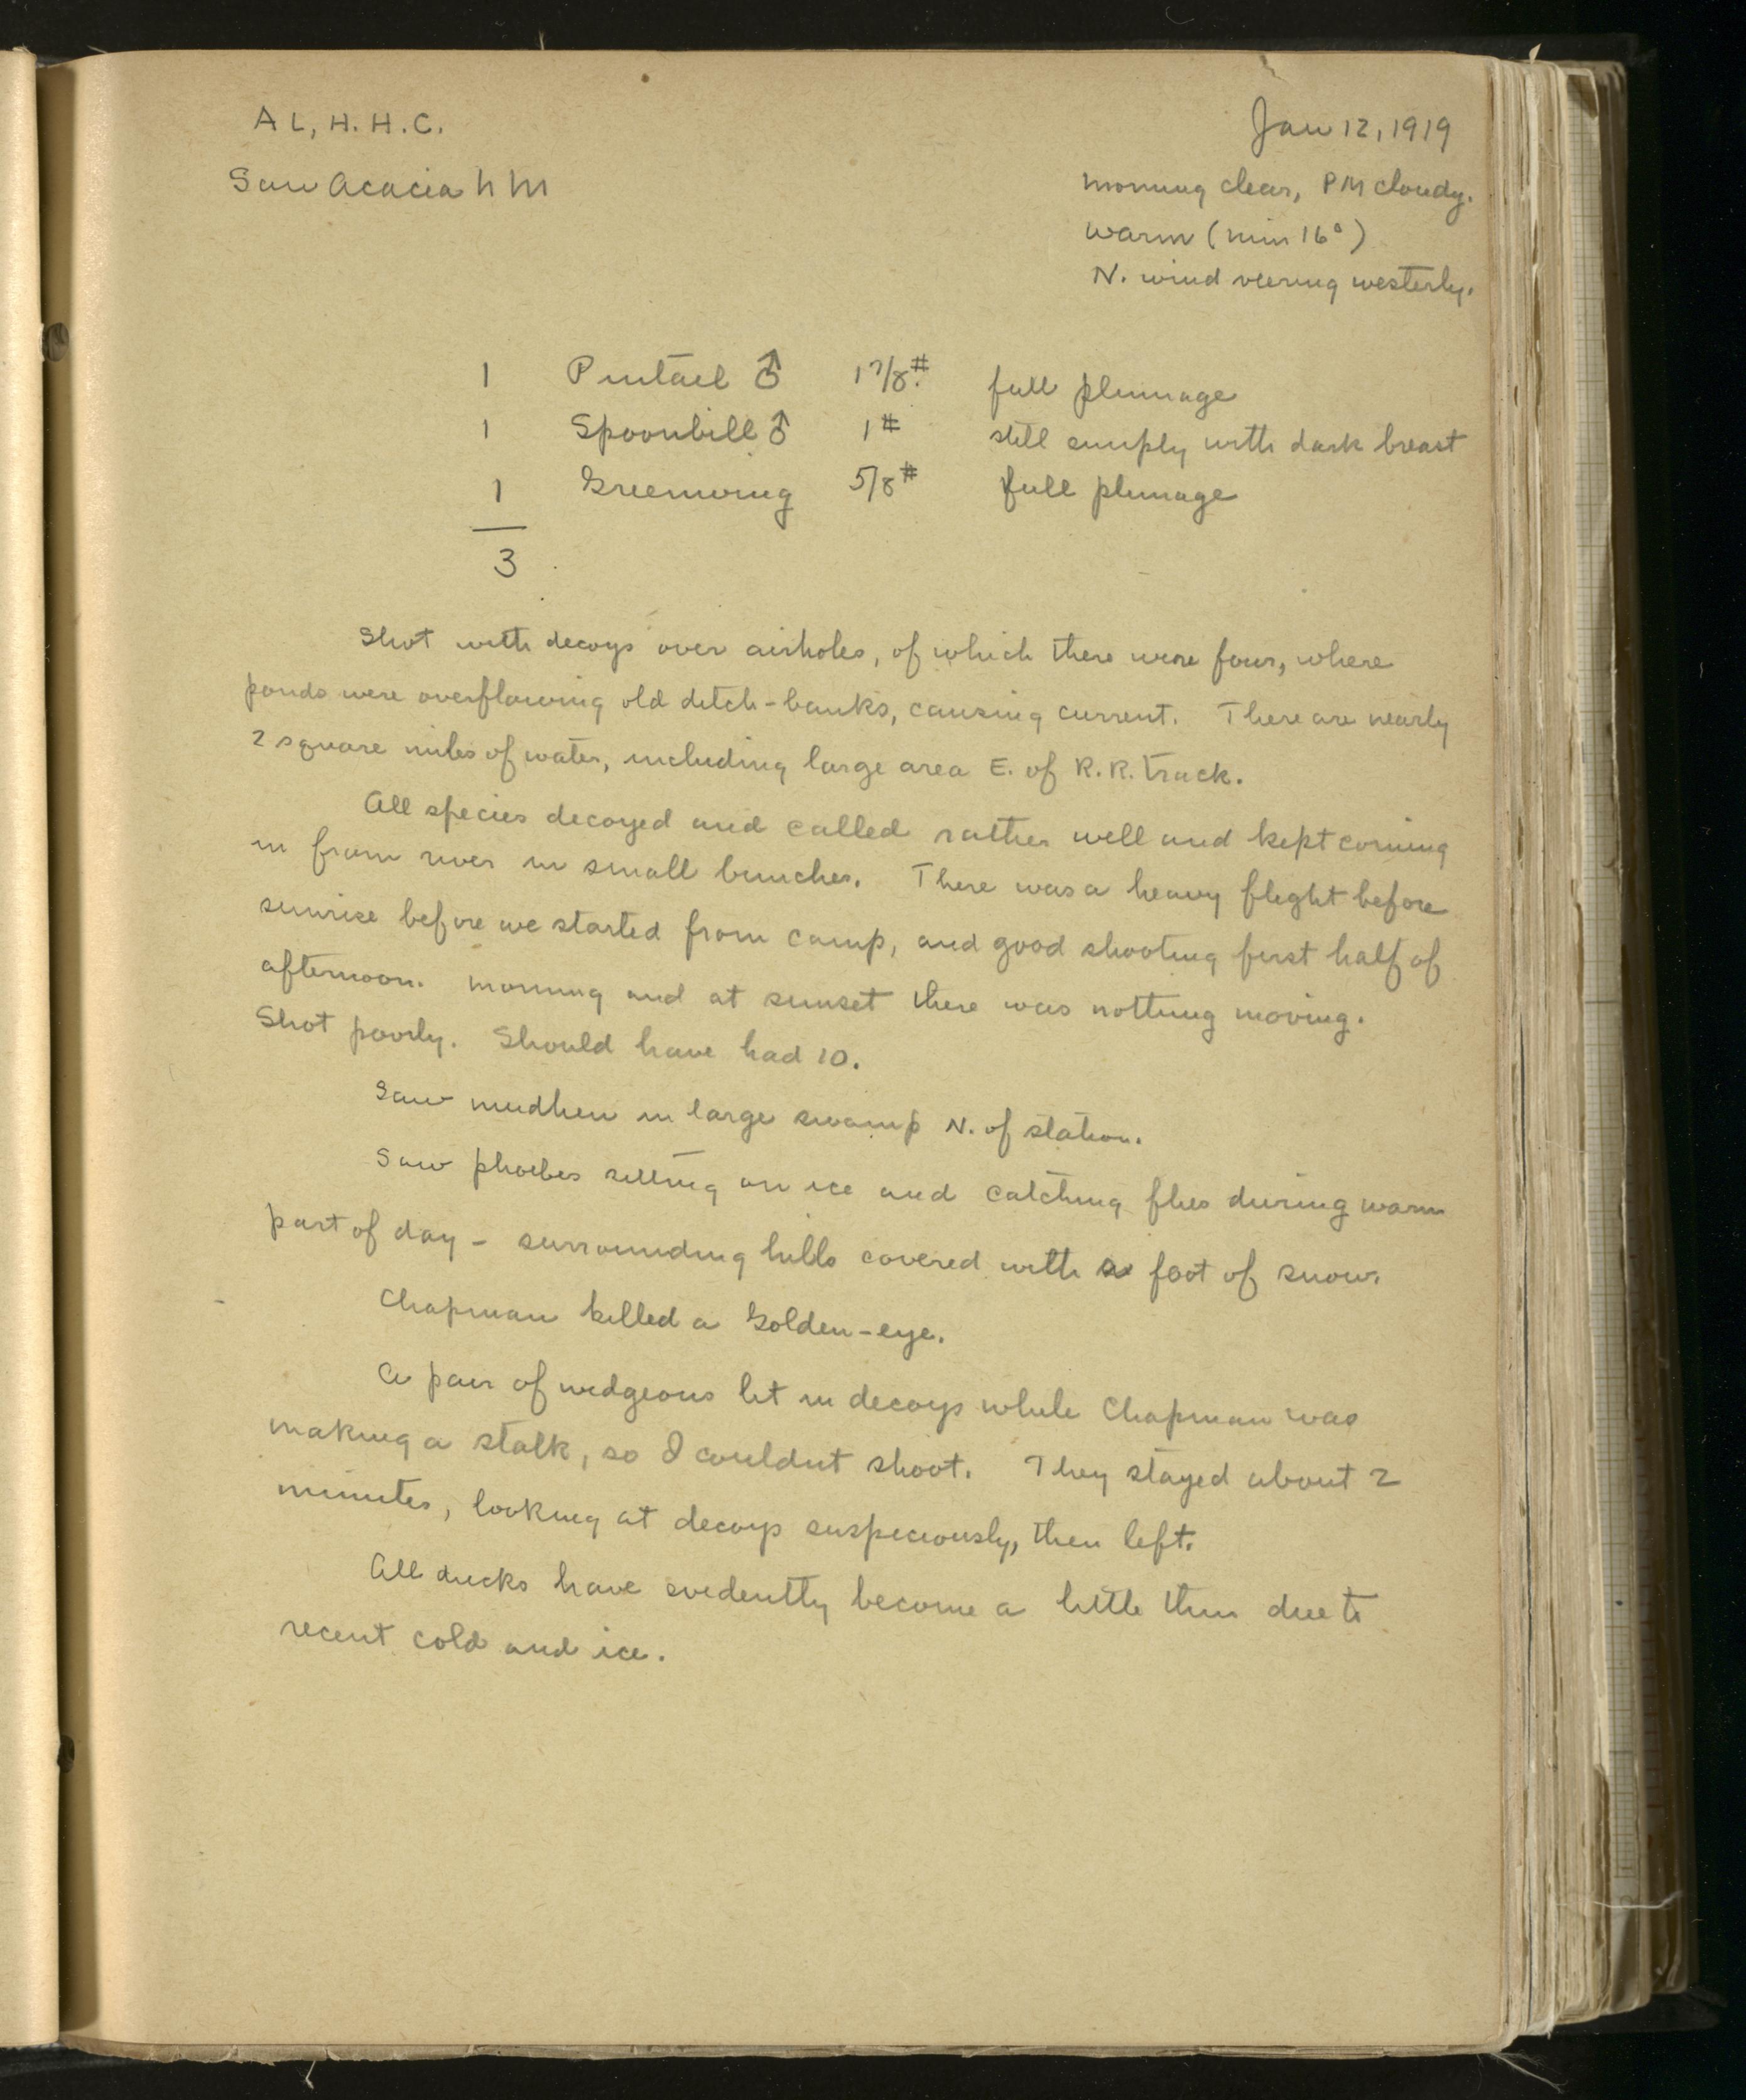 AL, H. H. C.
Jan 12, 1919
San Acacia N M
Morning clear, PM cloudy.
warm (min 16°)
N. wind veering westerly.
1 Pintail ♂ 1 7/8 # full plumage
1 Spoonbill ♂ 1 # still simply with dark breast
1 Greenwing 5/8 # full plumage
3
Shot with decoys over airholes, of which there were four, where
ponds were overflowing old ditch-banks, causing current. There are nearly
2 square miles of water, including large area E. of R.R. track.
All species decoyed and called rather well and kept coming
in from river in small bunches. There was a heavy flight before
sunrise before we started from camp, and good shooting first half of
afternoon. Morning and at sunset there was nothing moving.
Shot poorly. Should have had 10.
Saw mudhen in large swamp N. of station.
Saw phoebes sitting on ice and catching flies during warm
part of day - surrounding hills covered with a foot of snow.
Chapman killed a Golden-eye.
A pair of widgeons lit in decoys while Chapman was
making a stalk, so I couldnt shoot. They stayed about 2
minutes, looking at decoys suspiciously, then left.
All ducks have evidently become a little thin due to
recent cold and ice.